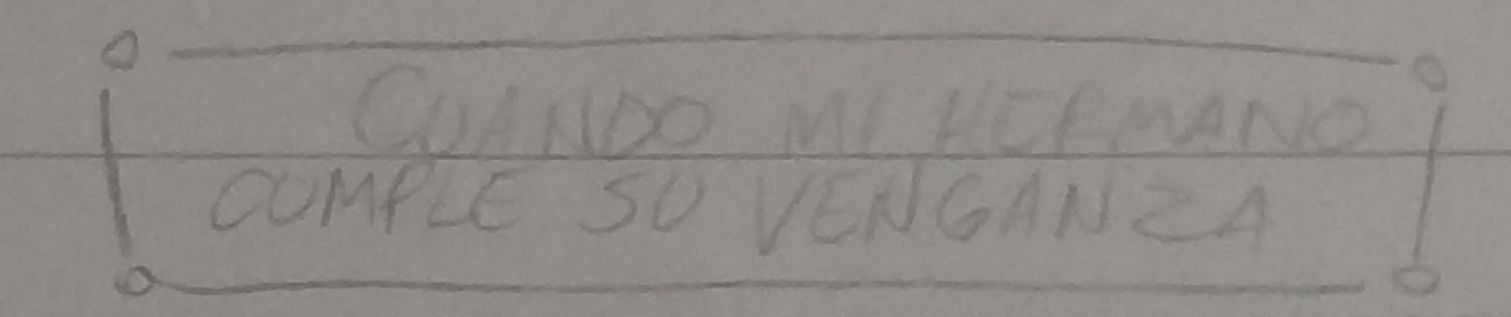 CUANDO MI HERMANO
CUMPLE SU VENGANZA